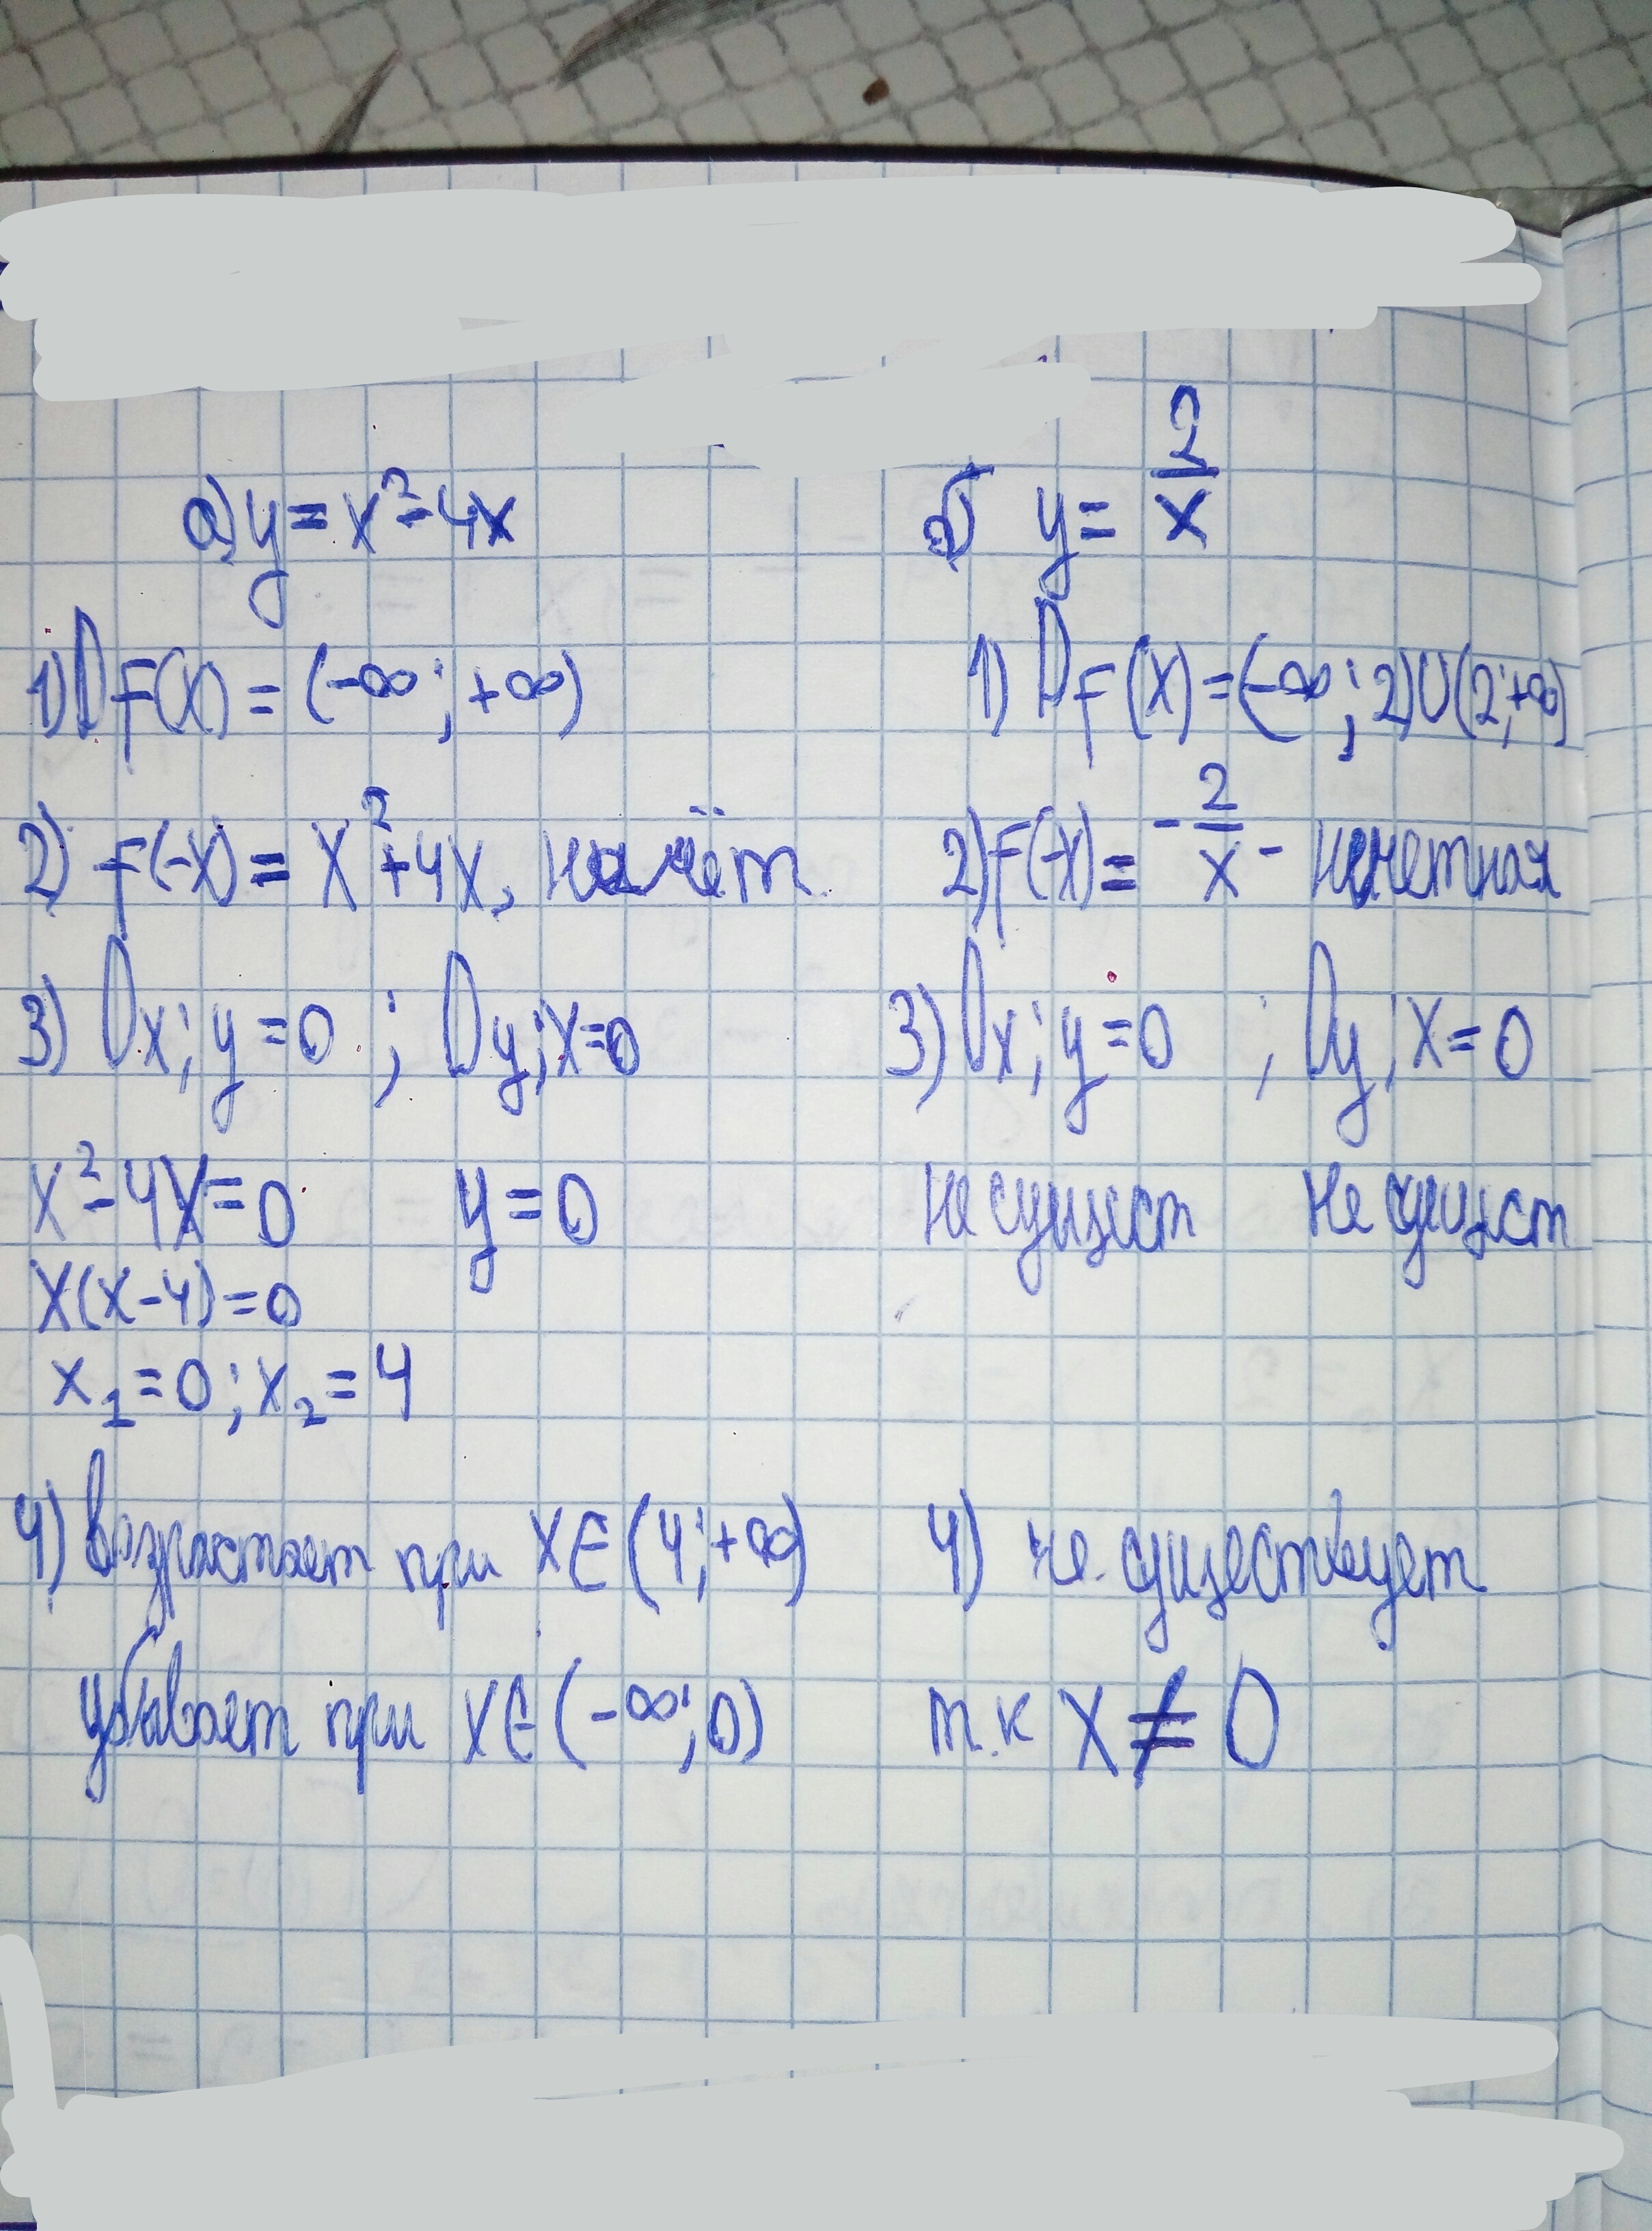 а) y = x² - 4x
1) D f(x) = (-∞; +∞)
2) f(-x) = x² + 4x,
3) Ox; y = 0 ; Oy; x = 0
x² - 4x = 0 y = 0
x(x - 4) = 0
x₁ = 0; x₂ = 4
4) возрастает при x ∈ (4; +∞)
убывает при x ∈ (-∞; 0)
б y = 2/x
1) D f(x) = (-∞; 2) ∪ (2; +∞)
2) f(-x) = - 2/x - нечетная
3) Ox; y = 0 ; Oy; x = 0
не сущест не сущест
4) не существует
т.к x ≠ 0